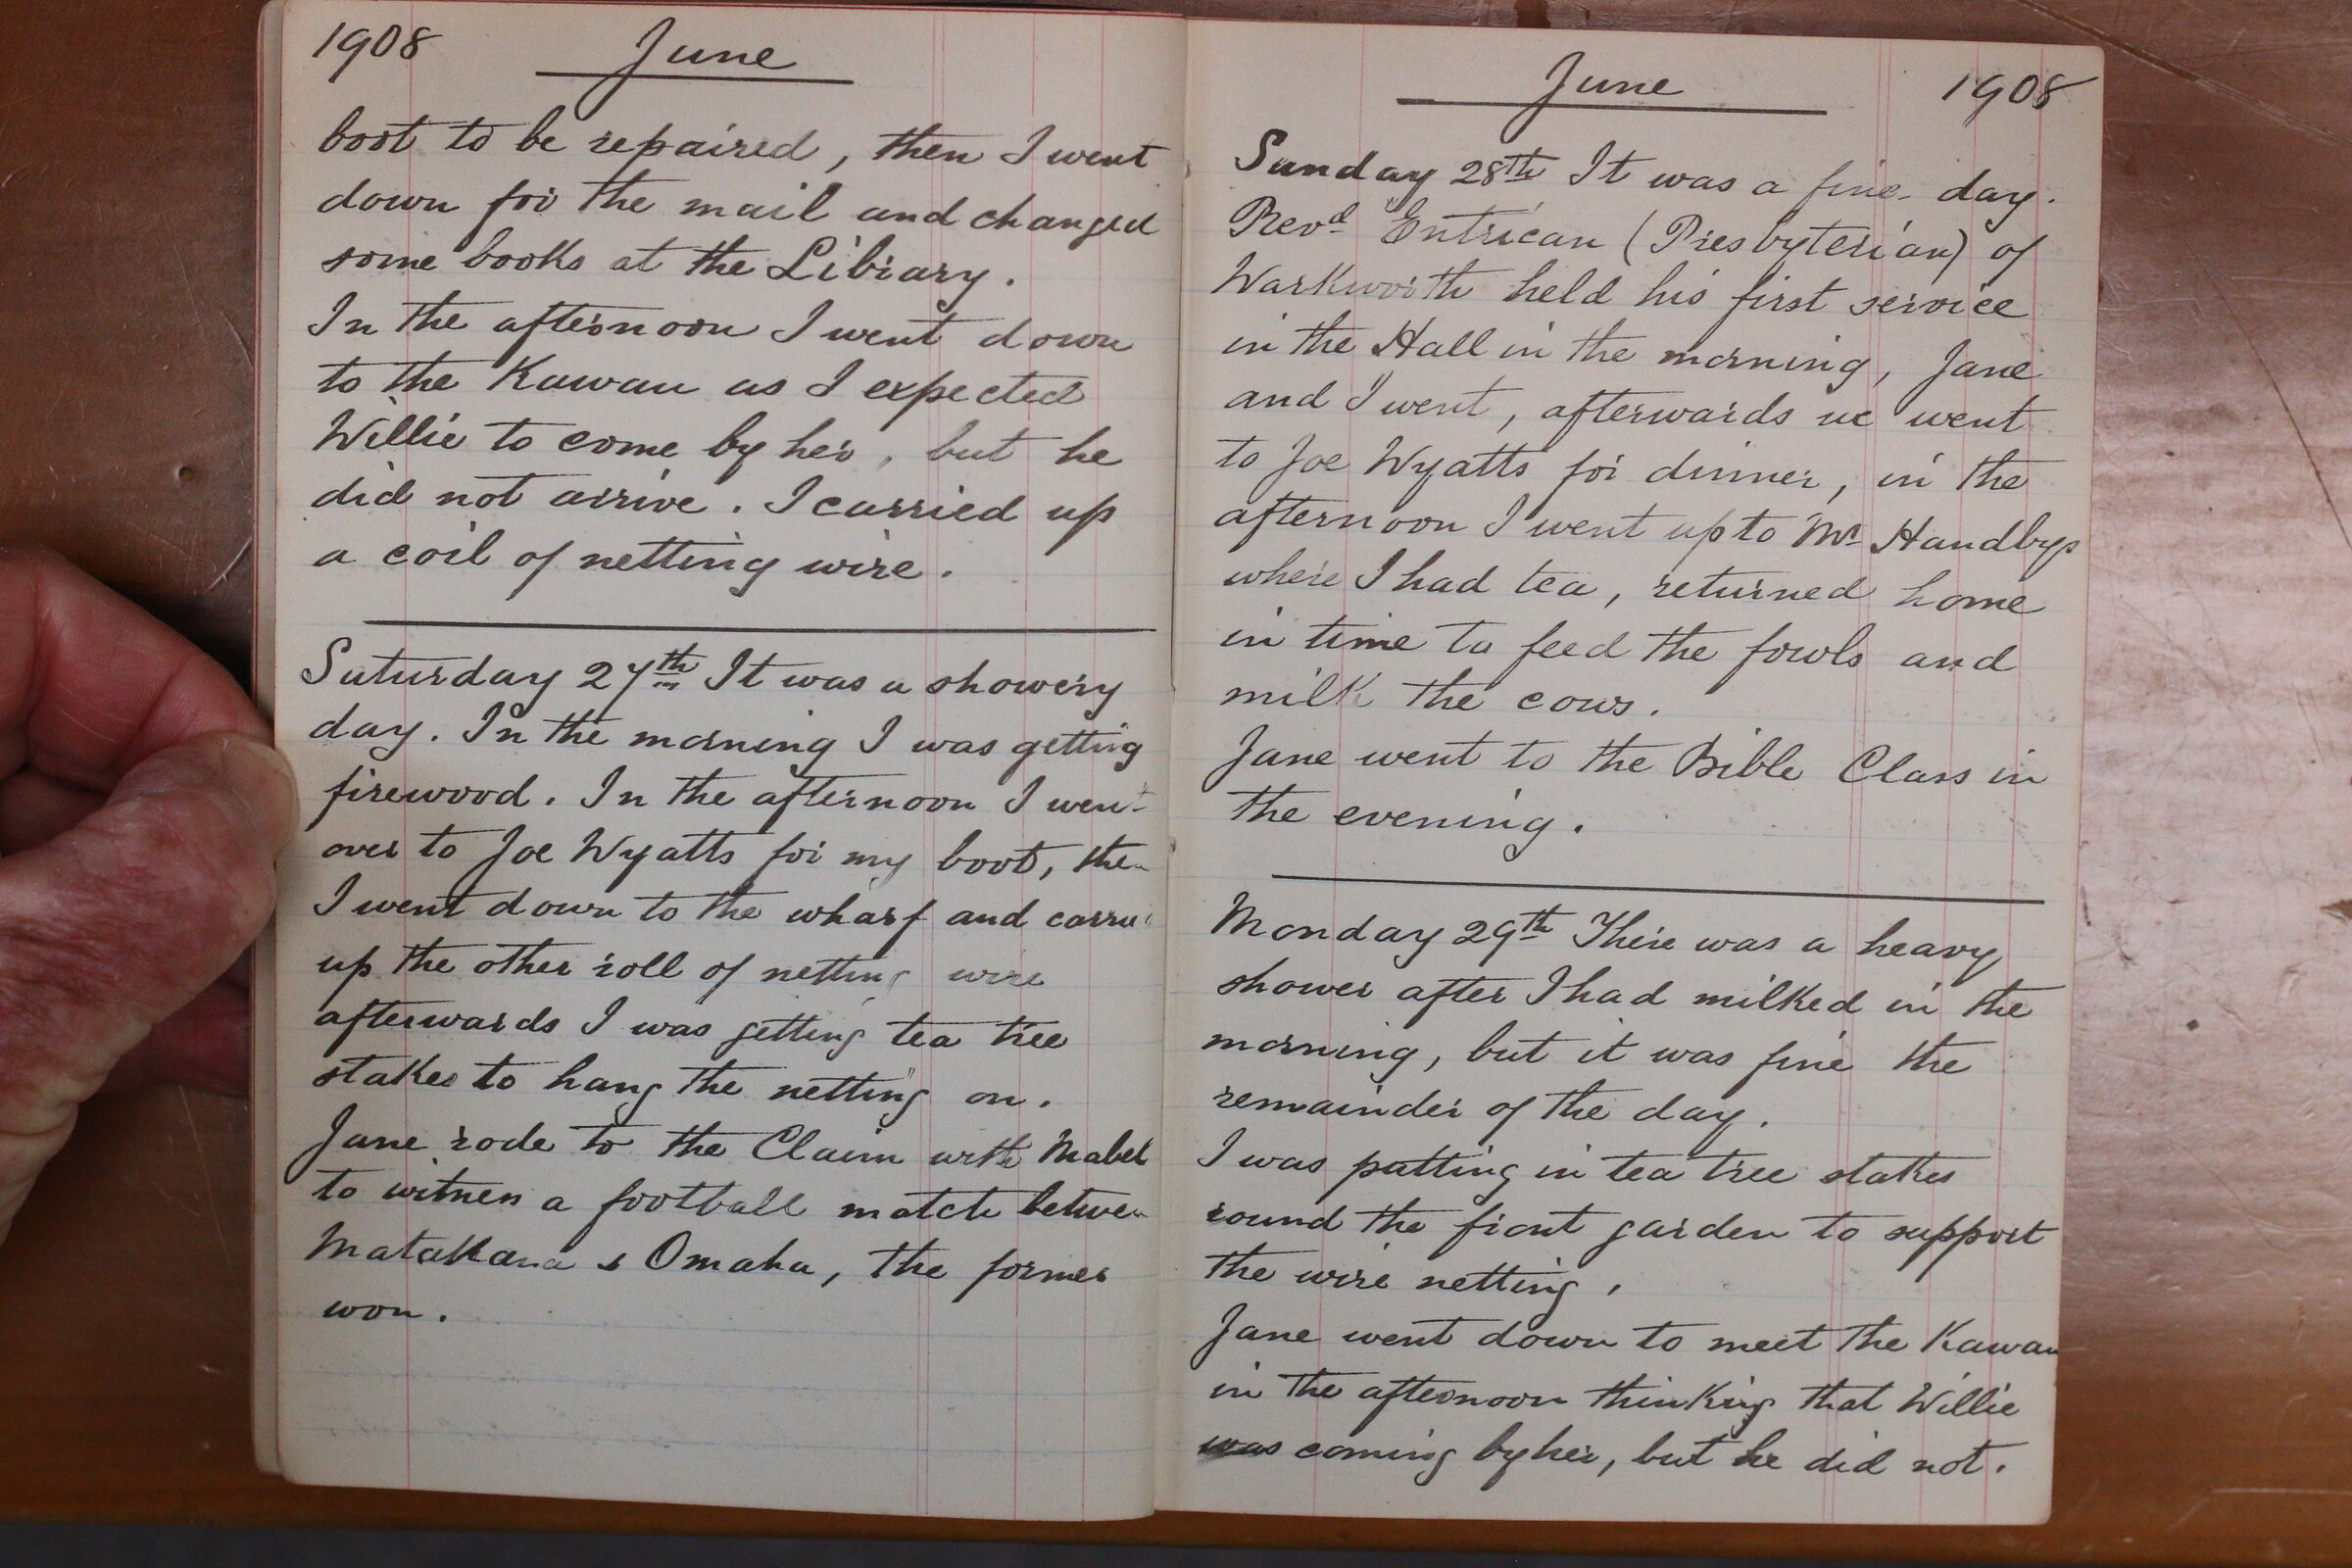 1908 June
boot to be repaired, then I went
down for the mail and changed
some books at the Library.
In the afternoon I went down
to the Kawau as I expected
Willie to come by her, but he
did not arrive. I carried up
a coil of netting wire.
Saturday 27th It was a showery
day. In the morning I was getting
firewood. In the afternoon I went
over to Joe Wyatts for my boot, then
I went down to the wharf and carried
up the other roll of netting wire
afterwards I was getting tea tree
stakes to hang the netting on.
Jane rode to the Claim with Mabel
to witness a football match between
Matakana & Omaha, the former
won.
June 1908
Sunday 28th It was a fine day.
Revd Entrican (Presbyterian) of
Warkworth held his first service
in the Hall in the morning, Jane
and I went, afterwards we went
to Joe Wyatts for dinner, in the
afternoon I went up to Mr Handbys
where I had tea, returned home
in time to feed the fowls and
milk the cows.
Jane went to the Bible Class in
the evening.
Monday 29th There was a heavy
shower after I had milked in the
morning, but it was fine the
remainder of the day.
I was putting in tea tree stakes
round the front garden to support
the wire netting.
Jane went down to meet the Kawau
in the afternoon thinking that Willie
was coming by her, but he did not.